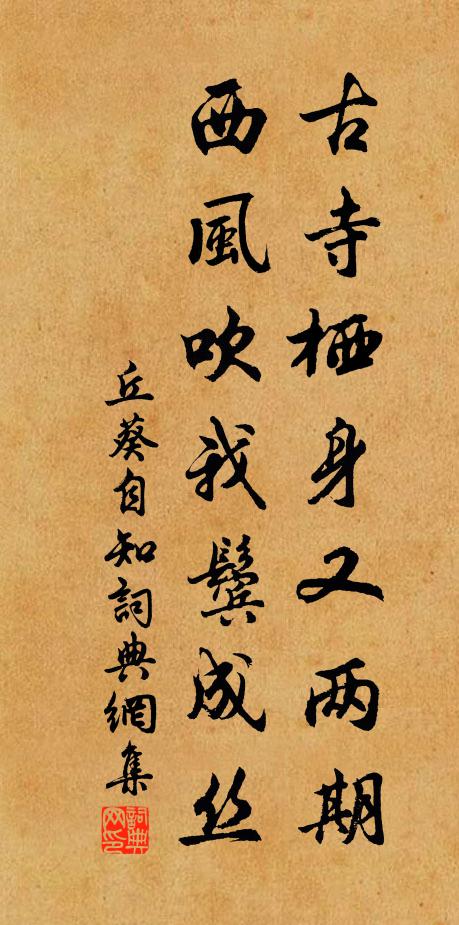 古寺栖身又两期
西風吹我鬓成丝
丘葵自知詞典網集
詞典网印